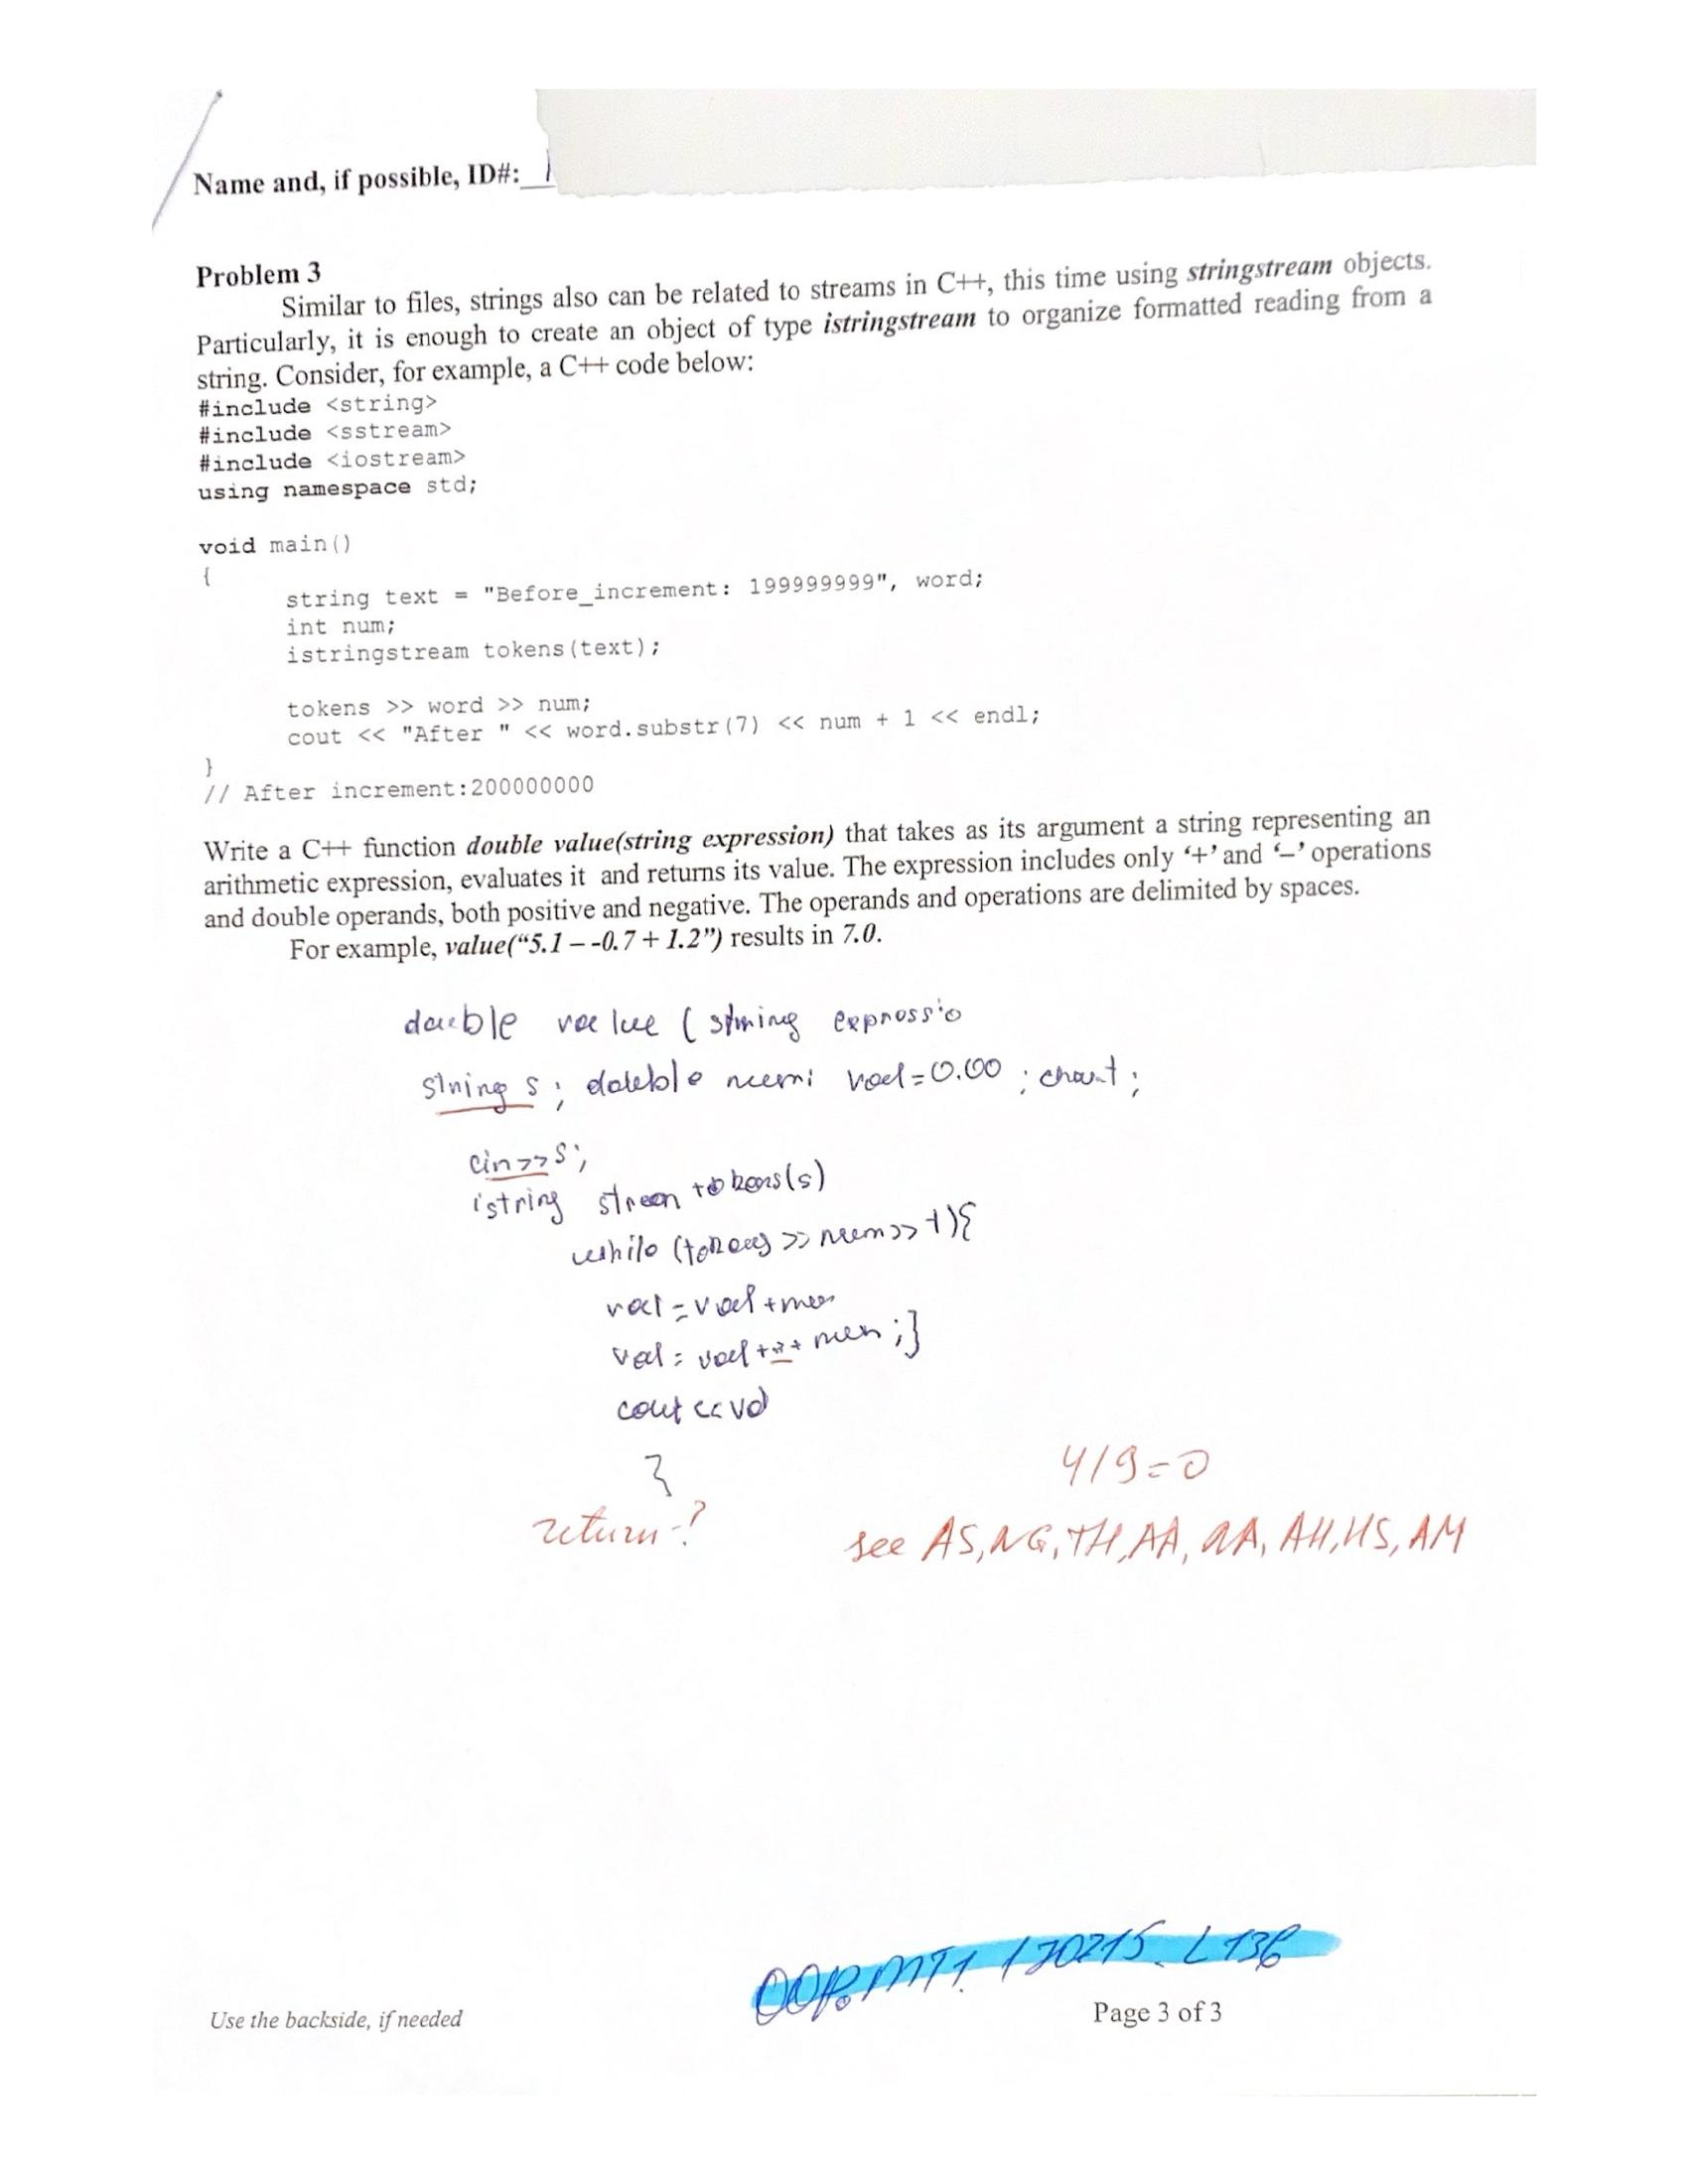 Name and, if possible, ID#:
Problem 3
Similar to files, strings also can be related to streams in C++, this time using stringstream objects.
Particularly, it is enough to create an object of type istringstream to organize formatted reading from a
string. Consider, for example, a C++ code below:
#include <string>
#include <sstream>
#include <iostream>
using namespace std;
void main()
{
string text = "Before_increment: 199999999", word;
int num;
istringstream tokens(text);
tokens >> word >> num;
cout << "After " << word.substr(7) << num + 1 << endl;
}
// After increment:200000000
Write a C++ function double value(string expression) that takes as its argument a string representing an
arithmetic expression, evaluates it and returns its value. The expression includes only ‘+’ and ‘–’ operations
and double operands, both positive and negative. The operands and operations are delimited by spaces.
For example, value(“5.1 – -0.7 + 1.2”) results in 7.0.
double value (string expressio
string s; double num; val=0.00 ; char t;
cin>>s;
istring stream tokens(s)
while (tokens >> num >> t){
val = val + num
val = val num ;}
cout << val
}
4/9=0
return-?
see AS, NG, TH, AA, AH, HS, AM
OOP. MT1. 170215. L136
Use the backside, if needed
Page 3 of 3